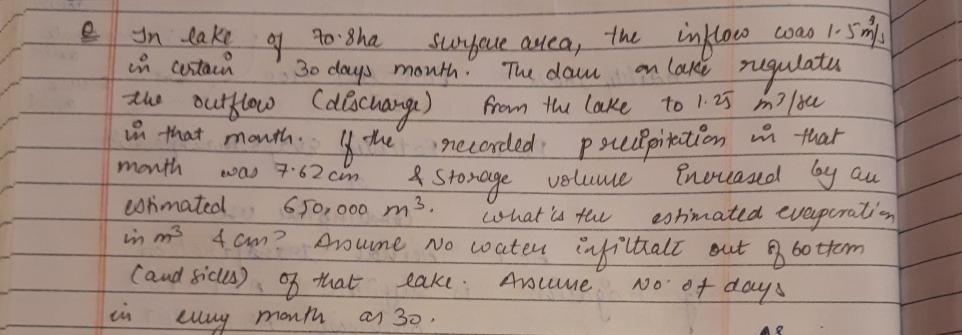 Q In lake of 70.8ha surface area, the inflow was 1.5 m³/s
in certain 30 days month. The dam on lake regulates
the outflow (discharge) from the lake to 1.25 m³/sec
in that month. If the recorded precipitation in that
month was 7.62 cm & storage volume increased by an
estimated 650,000 m³. what is the estimated evaporation
in m³ & cm? Assume No water infiltrate out of bottom
(and sides) of that lake. Assume No. of days
in every month as 30.